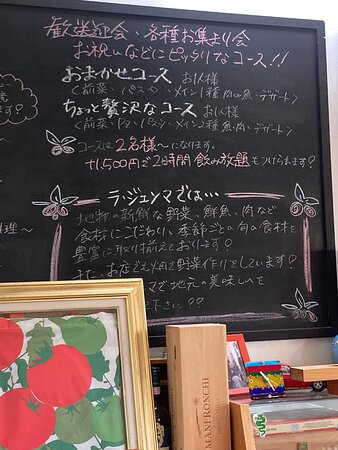 歓送迎会、各種お集まり会
お祝いなどにピッタリなコース!!
おまかせコース お1人様
〈前菜・パスタ・メイン1種 肉or魚・デザート〉
ちょっと贅沢なコース お1人様
〈前菜・ピザ・パスタ・メイン2種 魚・肉・デザート〉
コースは2名様〜になります。
+1,500円で2時間飲み放題もつけられます!
ラ・ジェンマでは…
地物の新鮮な野菜、鮮魚、肉など
食材にこだわり、季節ごとの旬の食材を
豊富に取り揃えております!
また、お店でも畑で野菜作りをしています!
マで地元の美味しいを
下さい!!
MANFRONCHI